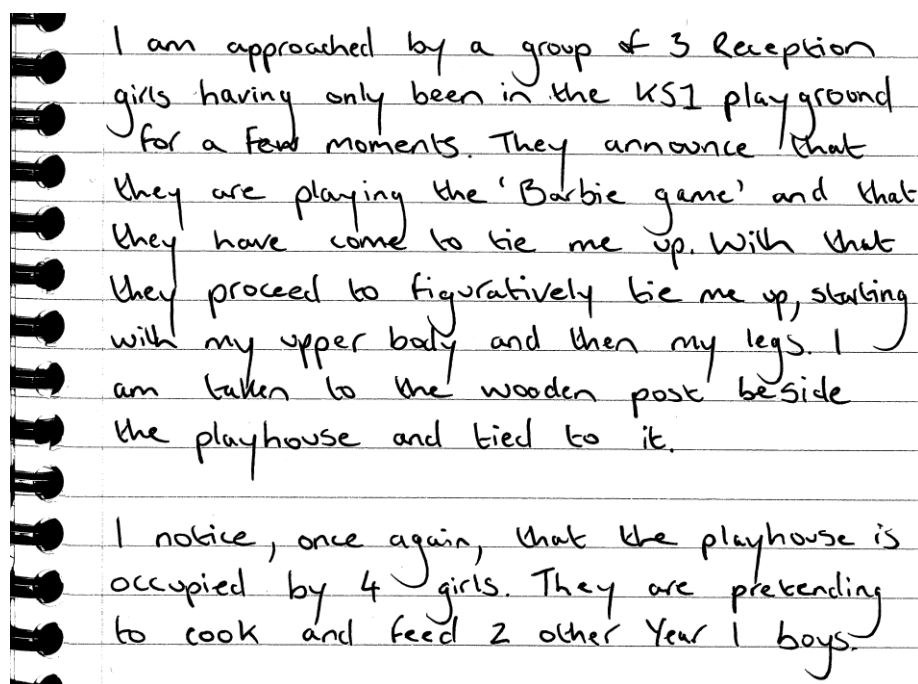 I am approached by a group of 3 Reception
girls having only been in the KS1 playground
for a few moments. They announce that
they are playing the 'Barbie game' and that
they have come to tie me up. With that
they proceed to figuratively tie me up, starting
with my upper body and then my legs. I
am taken to the wooden post beside
the playhouse and tied to it.
I notice, once again, that the playhouse is
occupied by 4 girls. They are pretending
to cook and feed 2 other Year 1 boys.